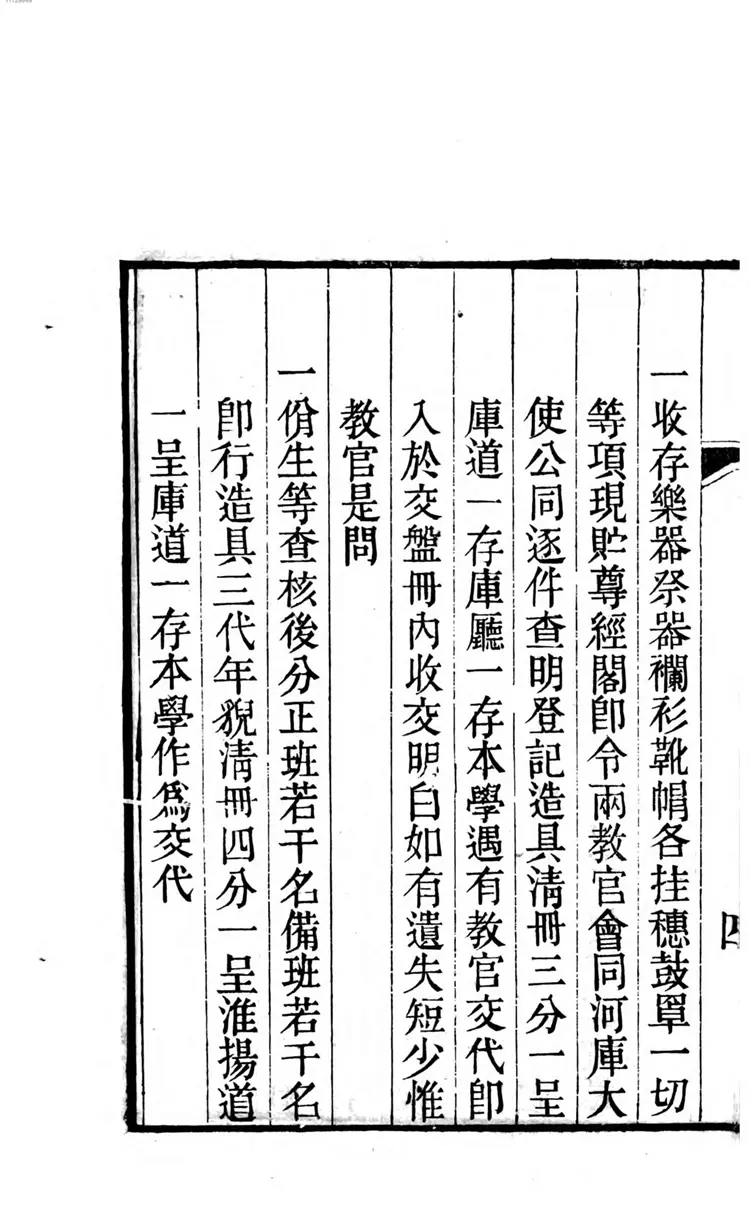 一收存樂器祭器襴衫靴帽各挂穗鼓罩一切
等項現貯尊經閣卽令兩教官會同河庫大
使公同逐件查明登記造具淸冊三分一呈
庫道一存庫廳一存本學遇有教官交代卽
入於交盤冊內收交明白如有遺失短少惟
教官是問
一佾生等查核後分正班若干名備班若干名
卽行造具三代年貌淸冊四分一呈淮揚道
一呈庫道一存本學作爲交代